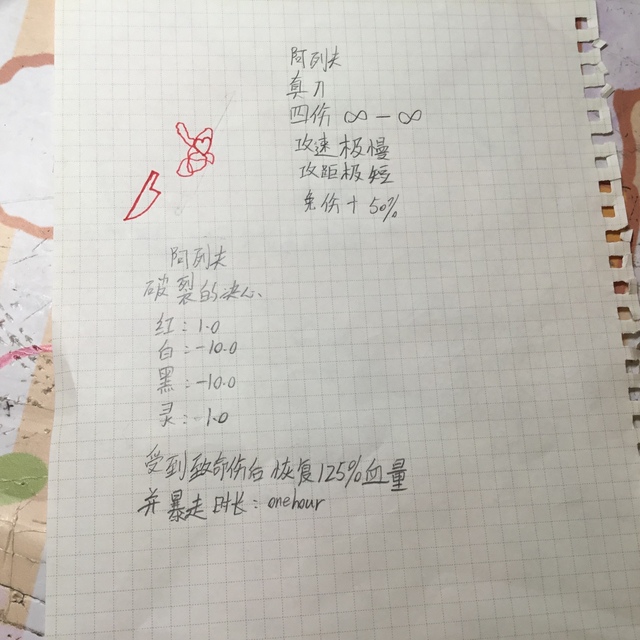 阿列夫
真刀
四伤 ∞-∞
攻速极慢
攻距极短
免伤+50%
阿列夫
破裂的决心
红:1.0
白:-10.0
黑:-10.0
灵:-1.0
受到致命伤后恢复125%血量
并暴走时长:onehour